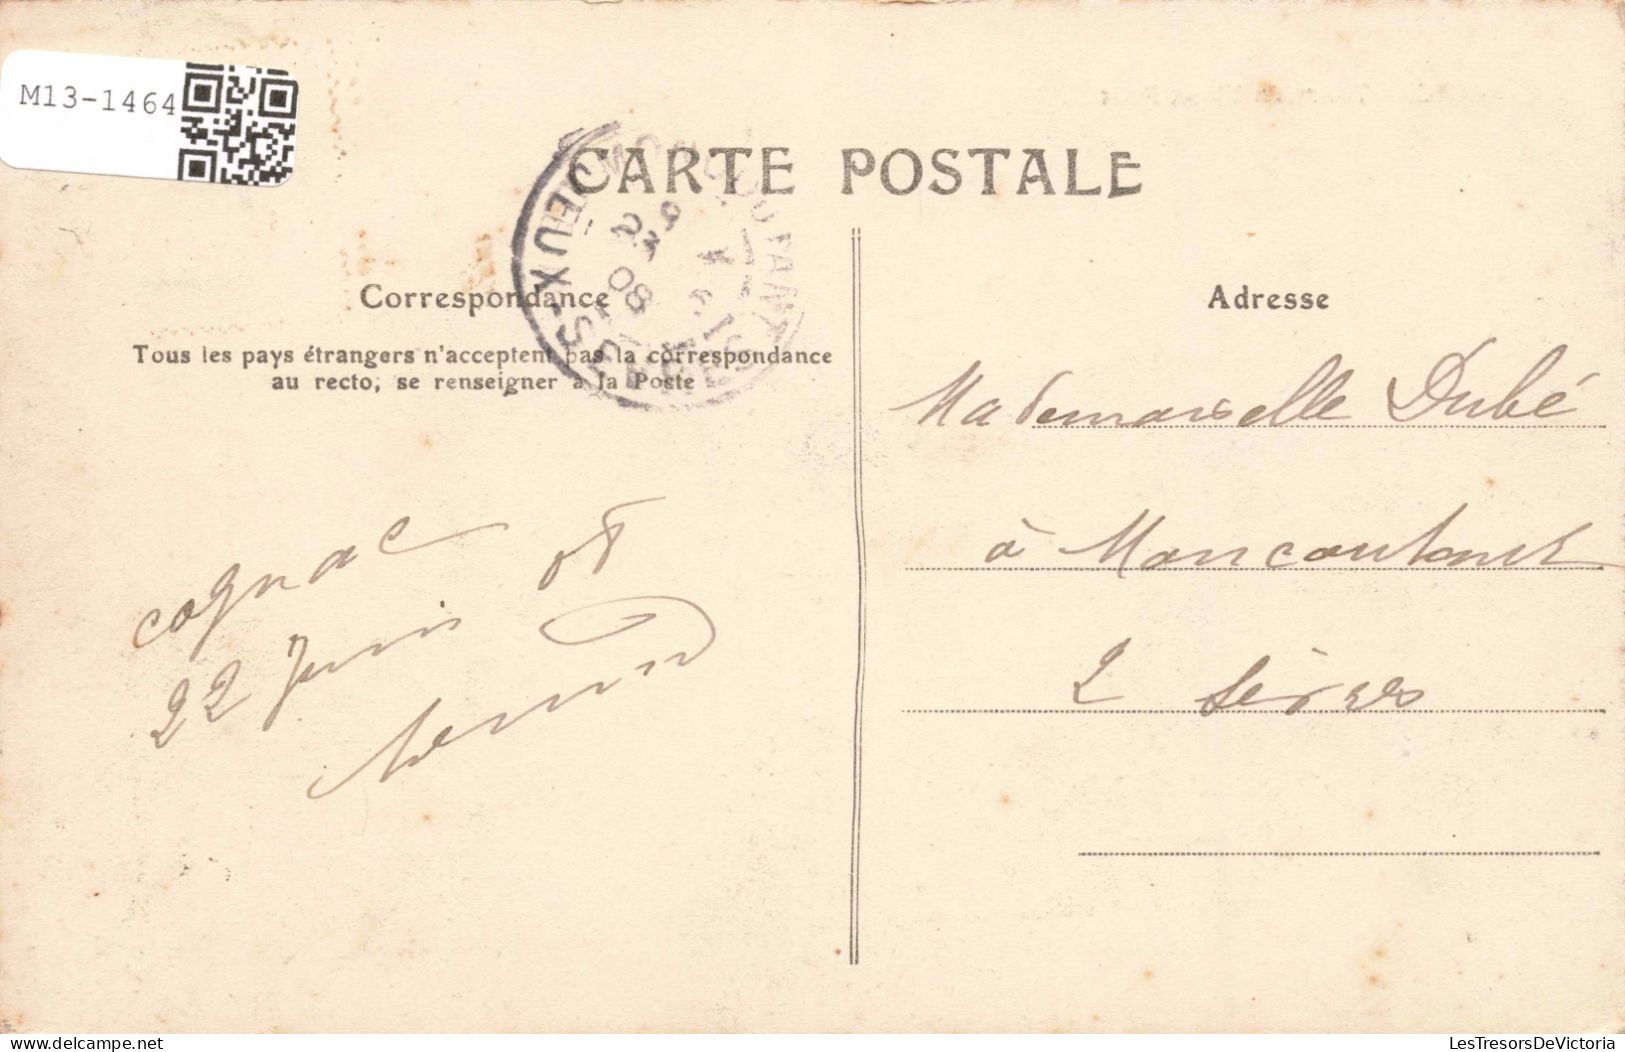 M13-1464
CARTE POSTALE
DEUX-SÈVRES
23
08
Correspondance
Tous les pays étrangers n'acceptent pas la correspondance
au recto, se renseigner à la Poste
Adresse
Mademoiselle Dubé
à Moncoutant
2 Sèvres
Cognac
22 Juin 08
delcampe.net
LesTresorsDeVictoria